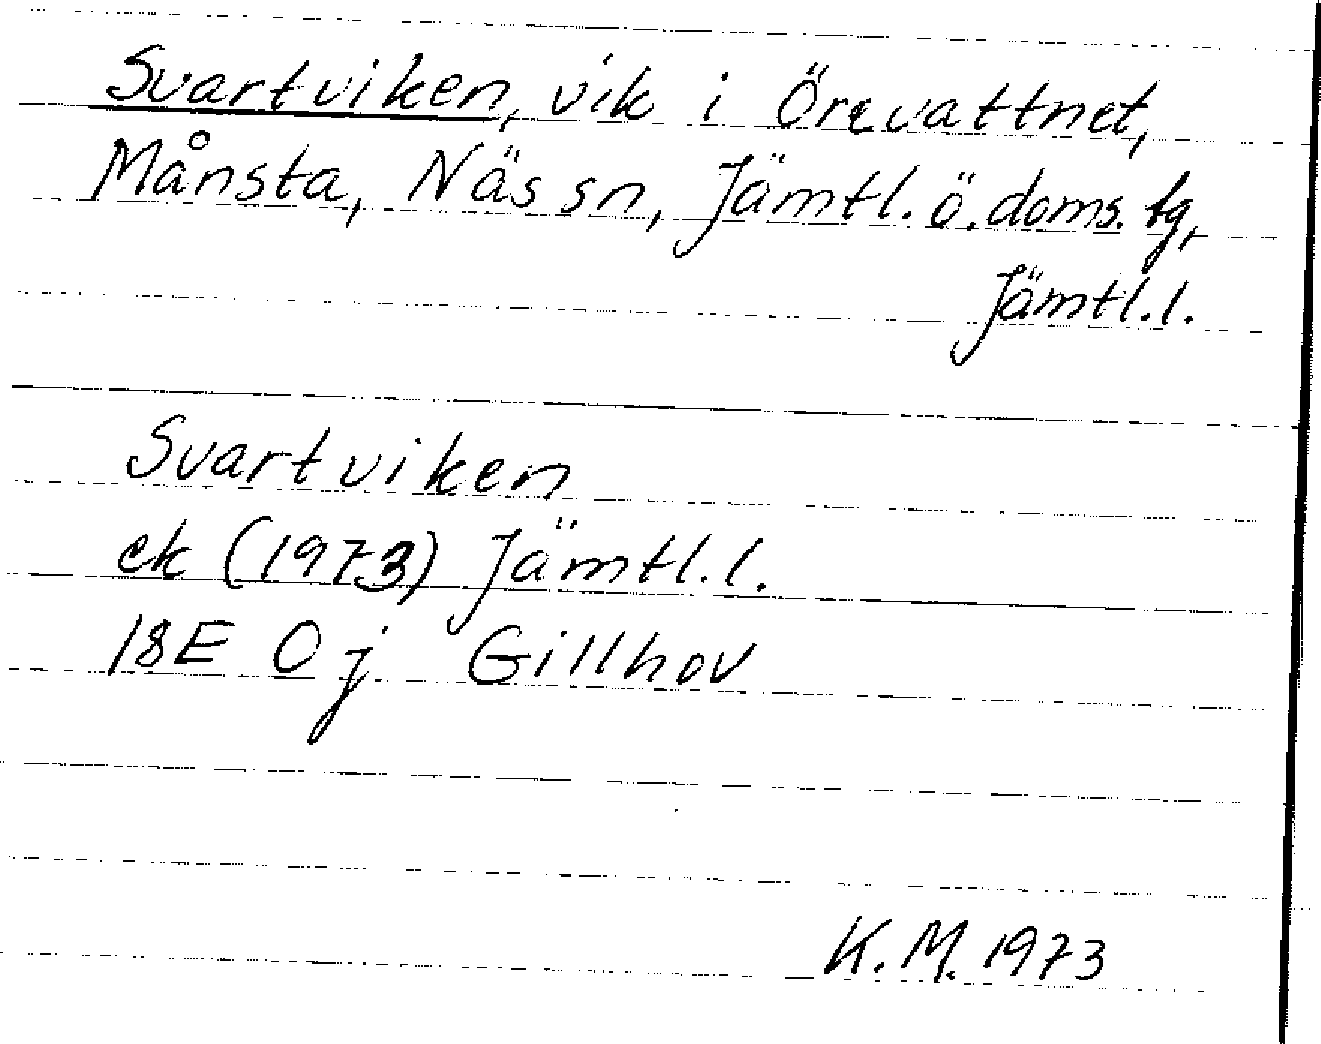 Svartviken, vik i Örevattnet,
Månsta, Näs sn, Jämtl. ö. doms. tg,
Jämtl. l.
Svartviken
ek (1973) Jämtl. l.
18E 0j Gillhov
K. M. 1973